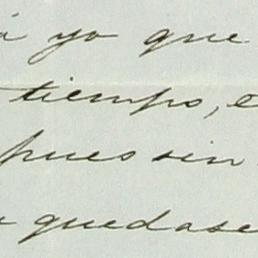 á yo que
tiempo, e
pues sin
quedase